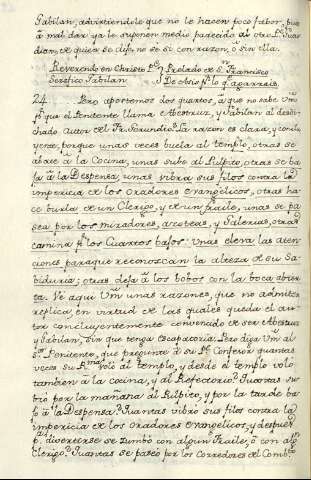 Pabilan, advirtiendole que no le hacen poco fabor, pues
à mal dar ya le suponen medio parecido àl otro Pe. Guar
dian, de quien se dijo, no se si con razon, ò sin ella.
Reverendo en Christo Pe. y Prelado de Sn. Francisco
Serafico Pabilan
24. Pero apostemos dos quartos, à que no sabe Vm
pr. que el Penitente llama Abestruz, y Pabilan al desdi-
chado Autor del Fr. Gerundio? La razon es clara, y conclu
yente, porque unas veces buela al templo, otras se
abate à la Cocina, unas sube al Pulpito, otras se ba
ja à la Despensa, unas vibra sus filos contra la
impericia de los oradores evangelicos, otras ha
ce burla de un Clerigo, y de un fraile, unas se pa
sea por los miradores, azoteas, y Galerias, otras
camina pr. los Quartos bajos: unas eleva las aten
ciones paraque reconozcan la alteza de su Sa-
biduria; otras deja à los bobos con la boca abier
ta. Ve aqui Vm unas razones, que no admiten
replica, en virtud de las quales queda el au-
tor concluyentemente convencido de ser Abestruz
y Pabilan, sin que tenga escapatoria. Pero diga Vm al
Sor. Penitente, que pregunte à su Pe. Confesor quantas
veces su Rma. voló al templo, y desde el templo voló
tambien à la cocina, y al Refectorio? Quantas su-
bio por la mañana al Pulpito, y por la tarde ba
jo à la Despensa? Quantas vibró sus filos contra la
impericia de los oradores evangelicos, y despues
pa. divertirse se zumbó con algun Fraile, ò con algn.
Clerigo? Quantas se paseo por los Corredores del Combto.